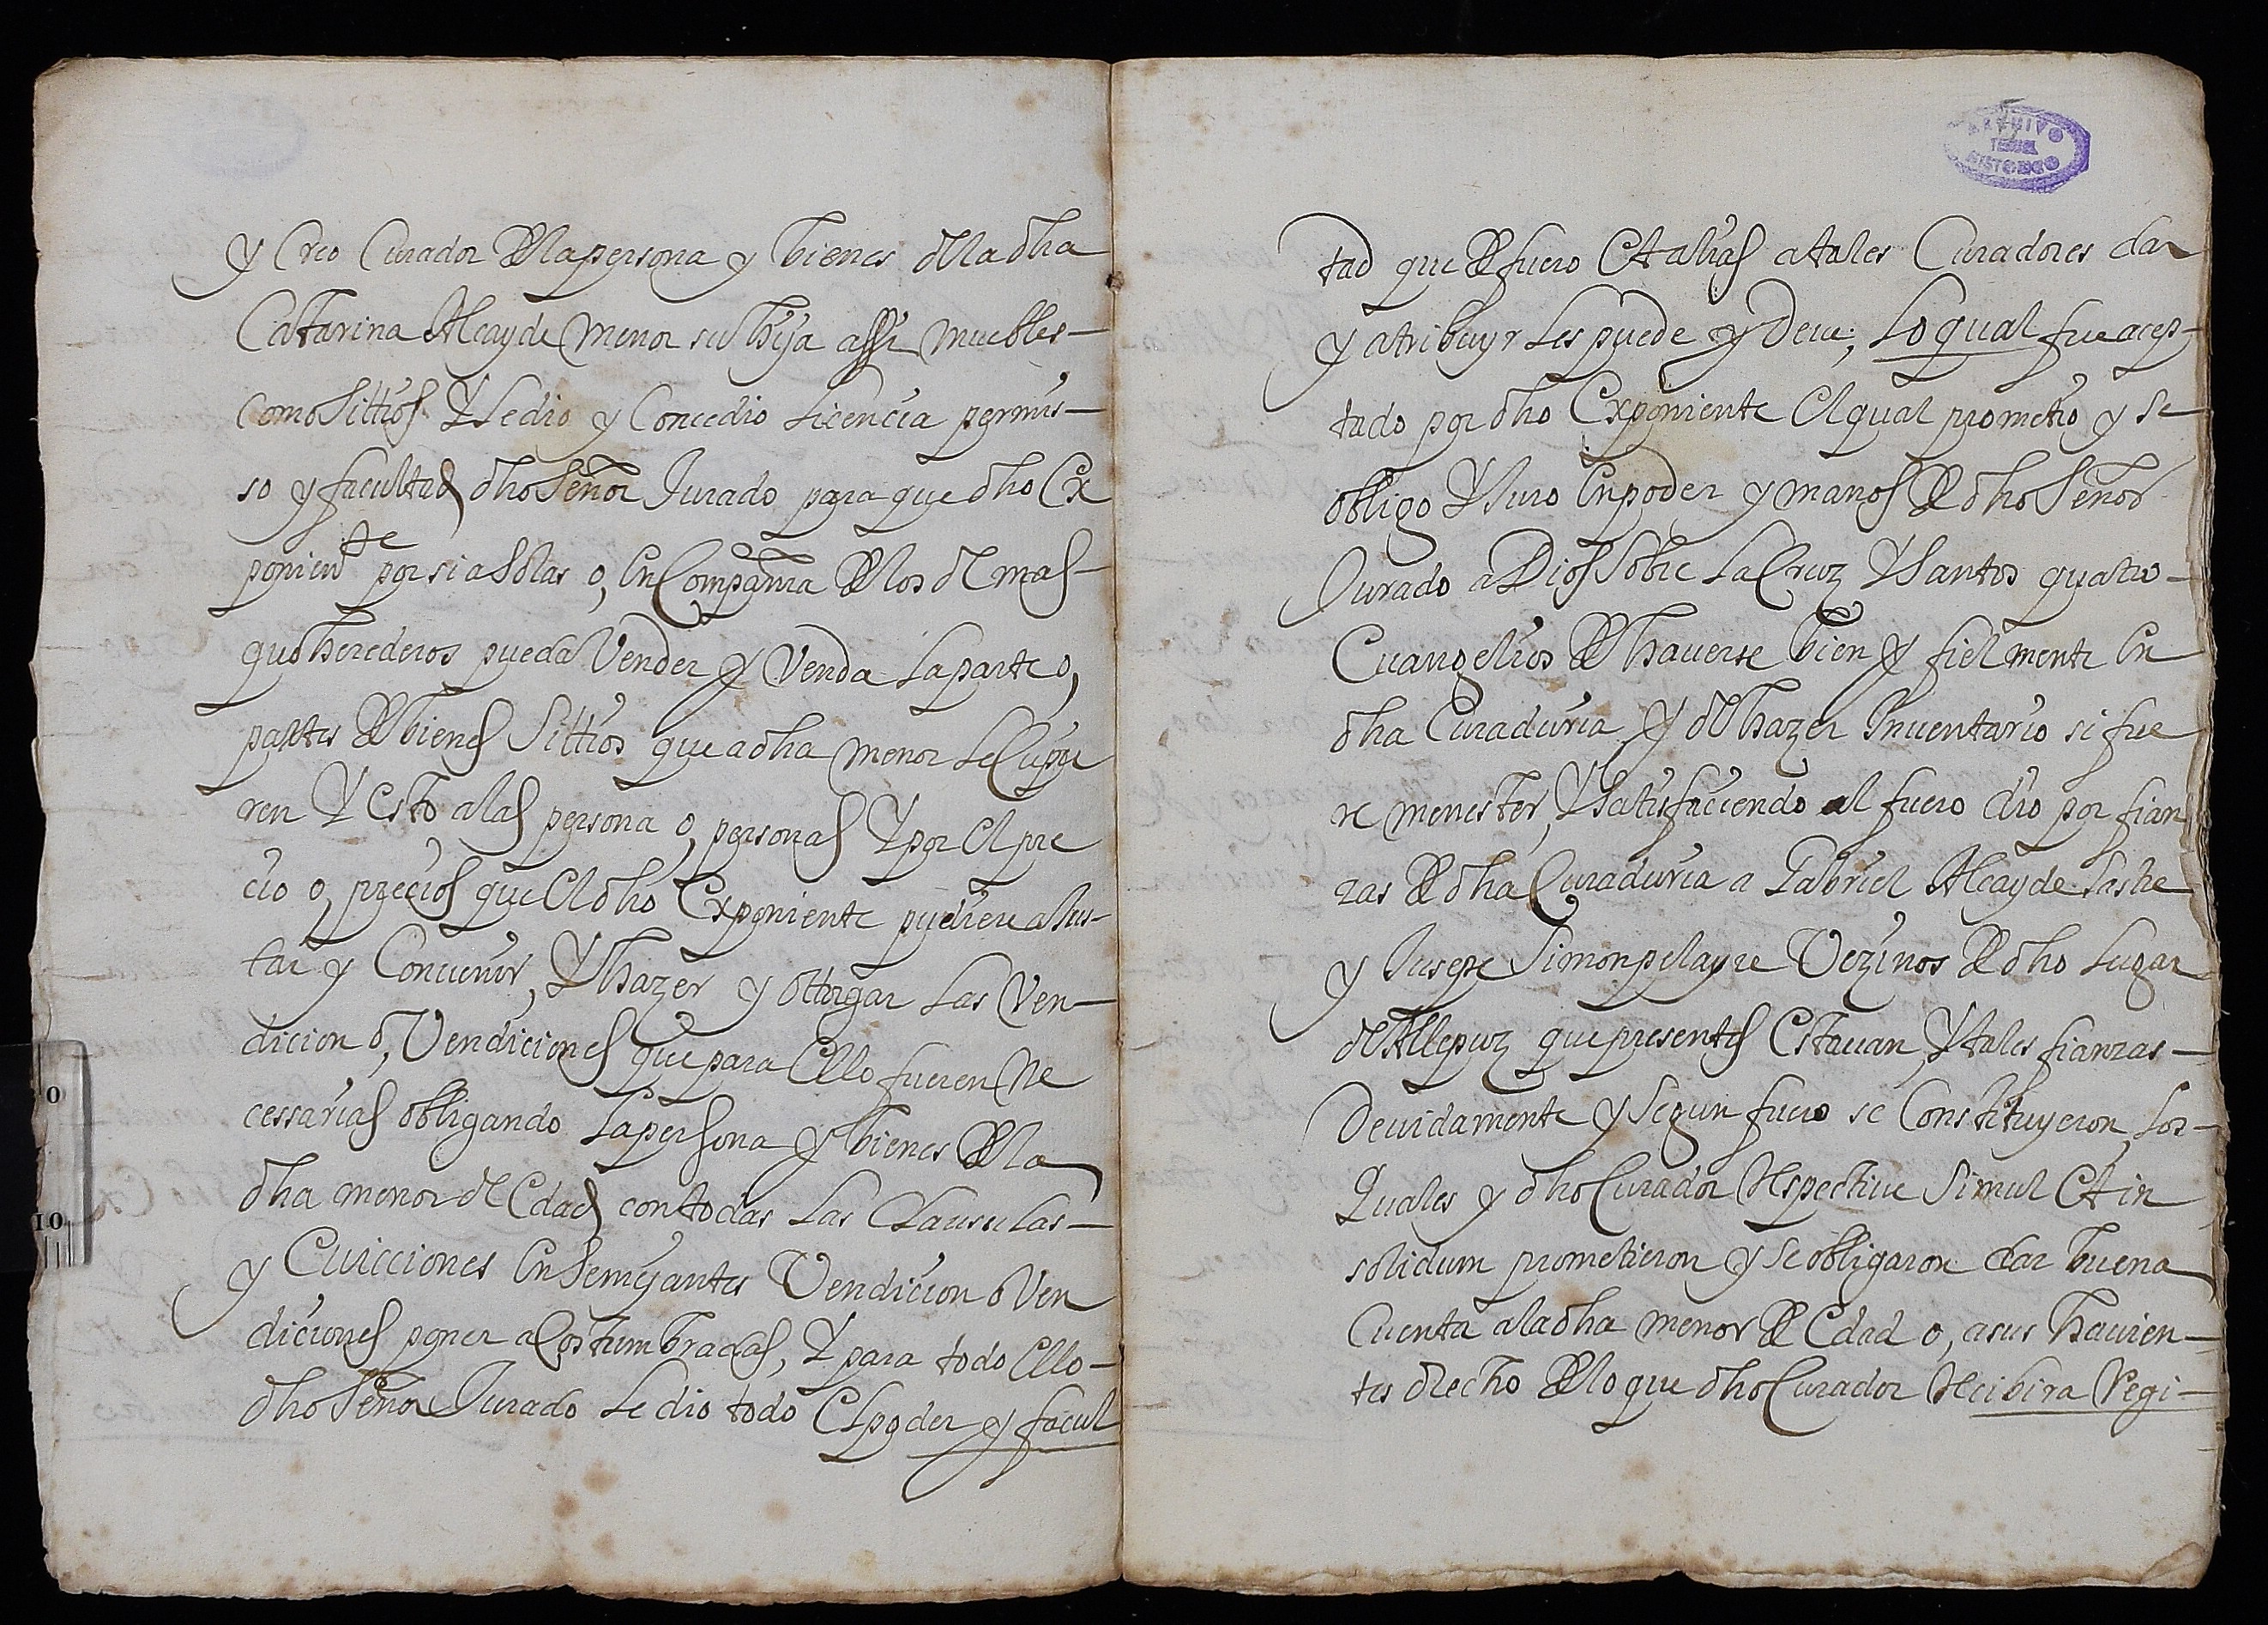 y Creo Curador de la persona y bienes de la dha
Catarina Alcayde menor su hija assi muebles -
como sittios Y le dio y Concedio Licencia permis -
so y facultad dho Señor Jurado para que dho Ex
ponien.te por si a Solas o, en Compañia de los de mas -
quo herederos pueda Vender y Venda la parte o,
partes de bienes Sittios que a dha menor le Cupie
ren Y esto a las persona o, personas Y por el pre
cio o, precios que el dho Exponiente pudiere aJus -
tar y Convenir, Y hazer y ottorgar las Ven -
dicion o, Vendiciones que para ello fueren Ne
cessarias obligando la persona y bienes de la
dha menor de Edad con todas las Clausulas -
y Euicciones en Semejantes Vendicion o Ven
diciones poner acostumbradas, Y para todo ello -
dho Señor Jurado le dio todo el poder y facul
ARCHIVO
TERUEL
HISTORICO
tad que de fuero et alias a tales Curadores dar
y atribuyr les puede y deue; lo qual fue acep -
tado por dho Exponiente el qual prometio y se
obligo Y Juro en poder y manos de dho Señor
Jurado a Dios Sobre la Cruz Y Santos quatro -
Euangelios de hauerse bien y fielmente en
dha Curaduria y de hazer Inuentario si fue
re menester, Y Satisfaciendo al fuero dio por fian
zas de dha Curaduria a Gabriel Alcayde Sastre
y Jusepe Simon pelayre Vezinos de dho Lugar
de Allepuz que presentes estauan, Y tales fianzas -
Deuidamente y Segun fuero se Constituyeron, los -
Quales y dho Curador Respective Simul et in
solidum prometieron y se obligaron dar buena
Cuenta a la dha menor de Edad o, a sus hauien -
tes drecho de lo que dho Curador Recibira Regi -